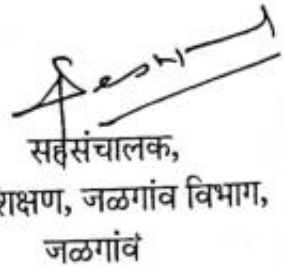 सहसंचालक,
जळगांव विभाग,
जळगांव